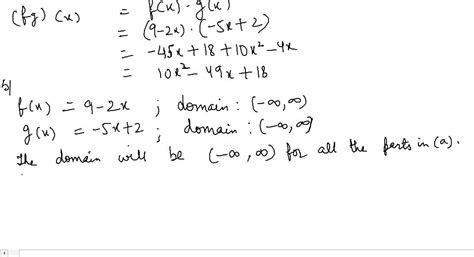 (fg) (x) = f(x) . g(x)
= (9-2x) . (-5x+2)
= -45x + 18 + 10x² - 4x
= 10x² - 49x + 18
b)
f(x) = 9-2x ; domain : (-∞,∞)
g(x) = -5x+2 ; domain : (-∞,∞)
The domain will be (-∞,∞) for all the parts in (a).